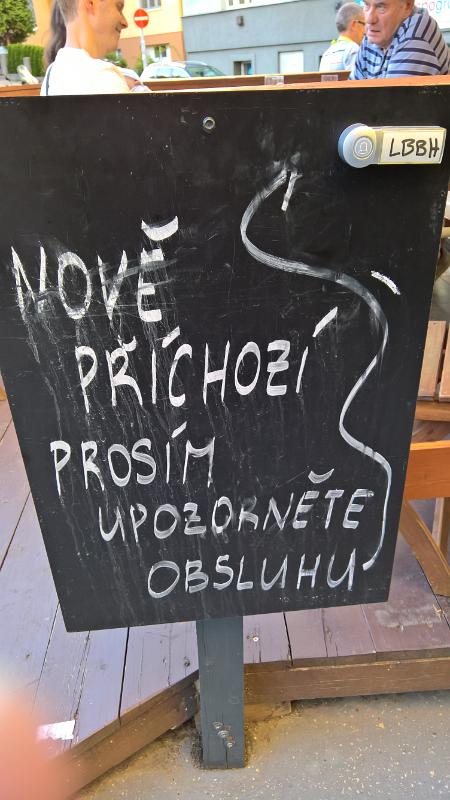 LBBH
NOVĚ
PŘÍCHOZÍ
PROSÍM
UPOZORNĚTE
OBSLUHU